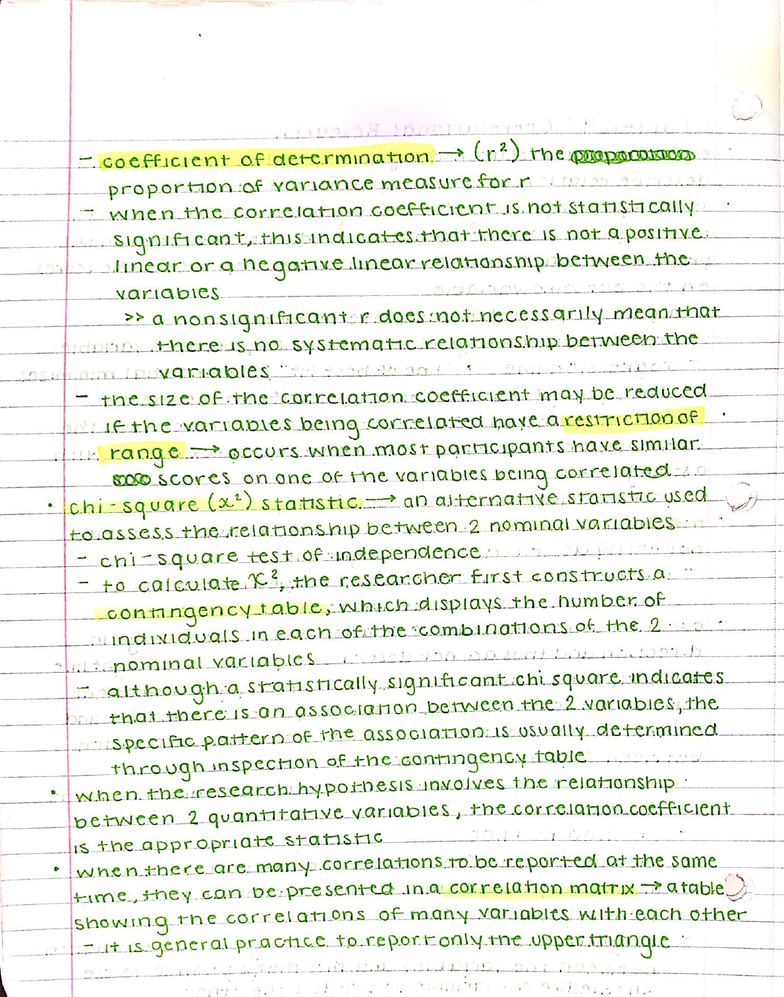 - coefficient of determination → (r²) the
proportion of variance measure for r
- when the correlation coefficient is not statistically
significant, this indicates that there is not a positive
linear or a negative linear relationship between the
variables
>> a nonsignificant r does not necessarily mean that
there is no systematic relationship between the
variables
- the size of the correlation coefficient may be reduced
if the variables being correlated have a restriction of
range → occurs when most participants have similar
scores on one of the variables being correlated
• chi-square (x²) statistic → an alternative statistic used
to assess the relationship between 2 nominal variables
- chi-square test of independence
- to calculate x², the researcher first constructs a
contingency table, which displays the number of
individuals in each of the combinations of the 2
nominal variables
- although a statistically significant chi square indicates
that there is an association between the 2 variables, the
specific pattern of the association is usually determined
through inspection of the contingency table
• when the research hypothesis involves the relationship
between 2 quantitative variables, the correlation coefficient
is the appropriate statistic
• when there are many correlations to be reported at the same
time, they can be presented in a correlation matrix → a table
showing the correlations of many variables with each other
- it is general practice to report only the upper triangle